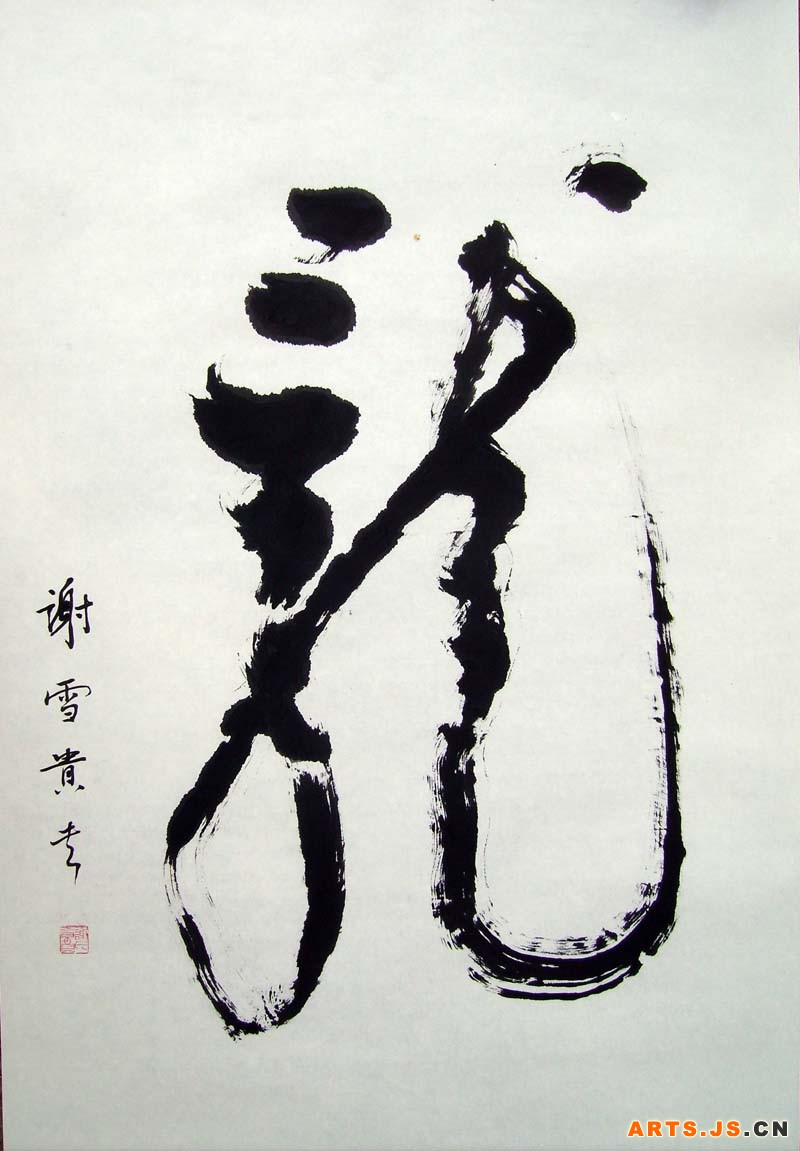 龍
谢雪貴书
ARTS.JS.CN